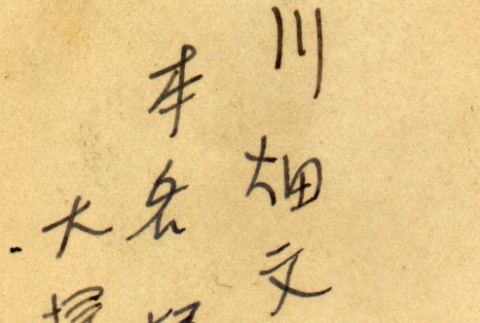 川畑文
本名
大